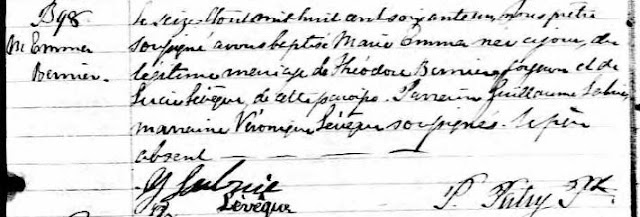 B98
M Emma
Bernier.
Le seize Aout mil huit cent soixante un nous prêtre
soussigné avons baptisé Marie Emma née ce jour, du
légitime mariage de Théodore Bernier, et de
Lucie Lévêque, de cette paroisse. Parrain Guillaume
marraine Véronique Lévêque soussignés. le père
absent
Lévêque